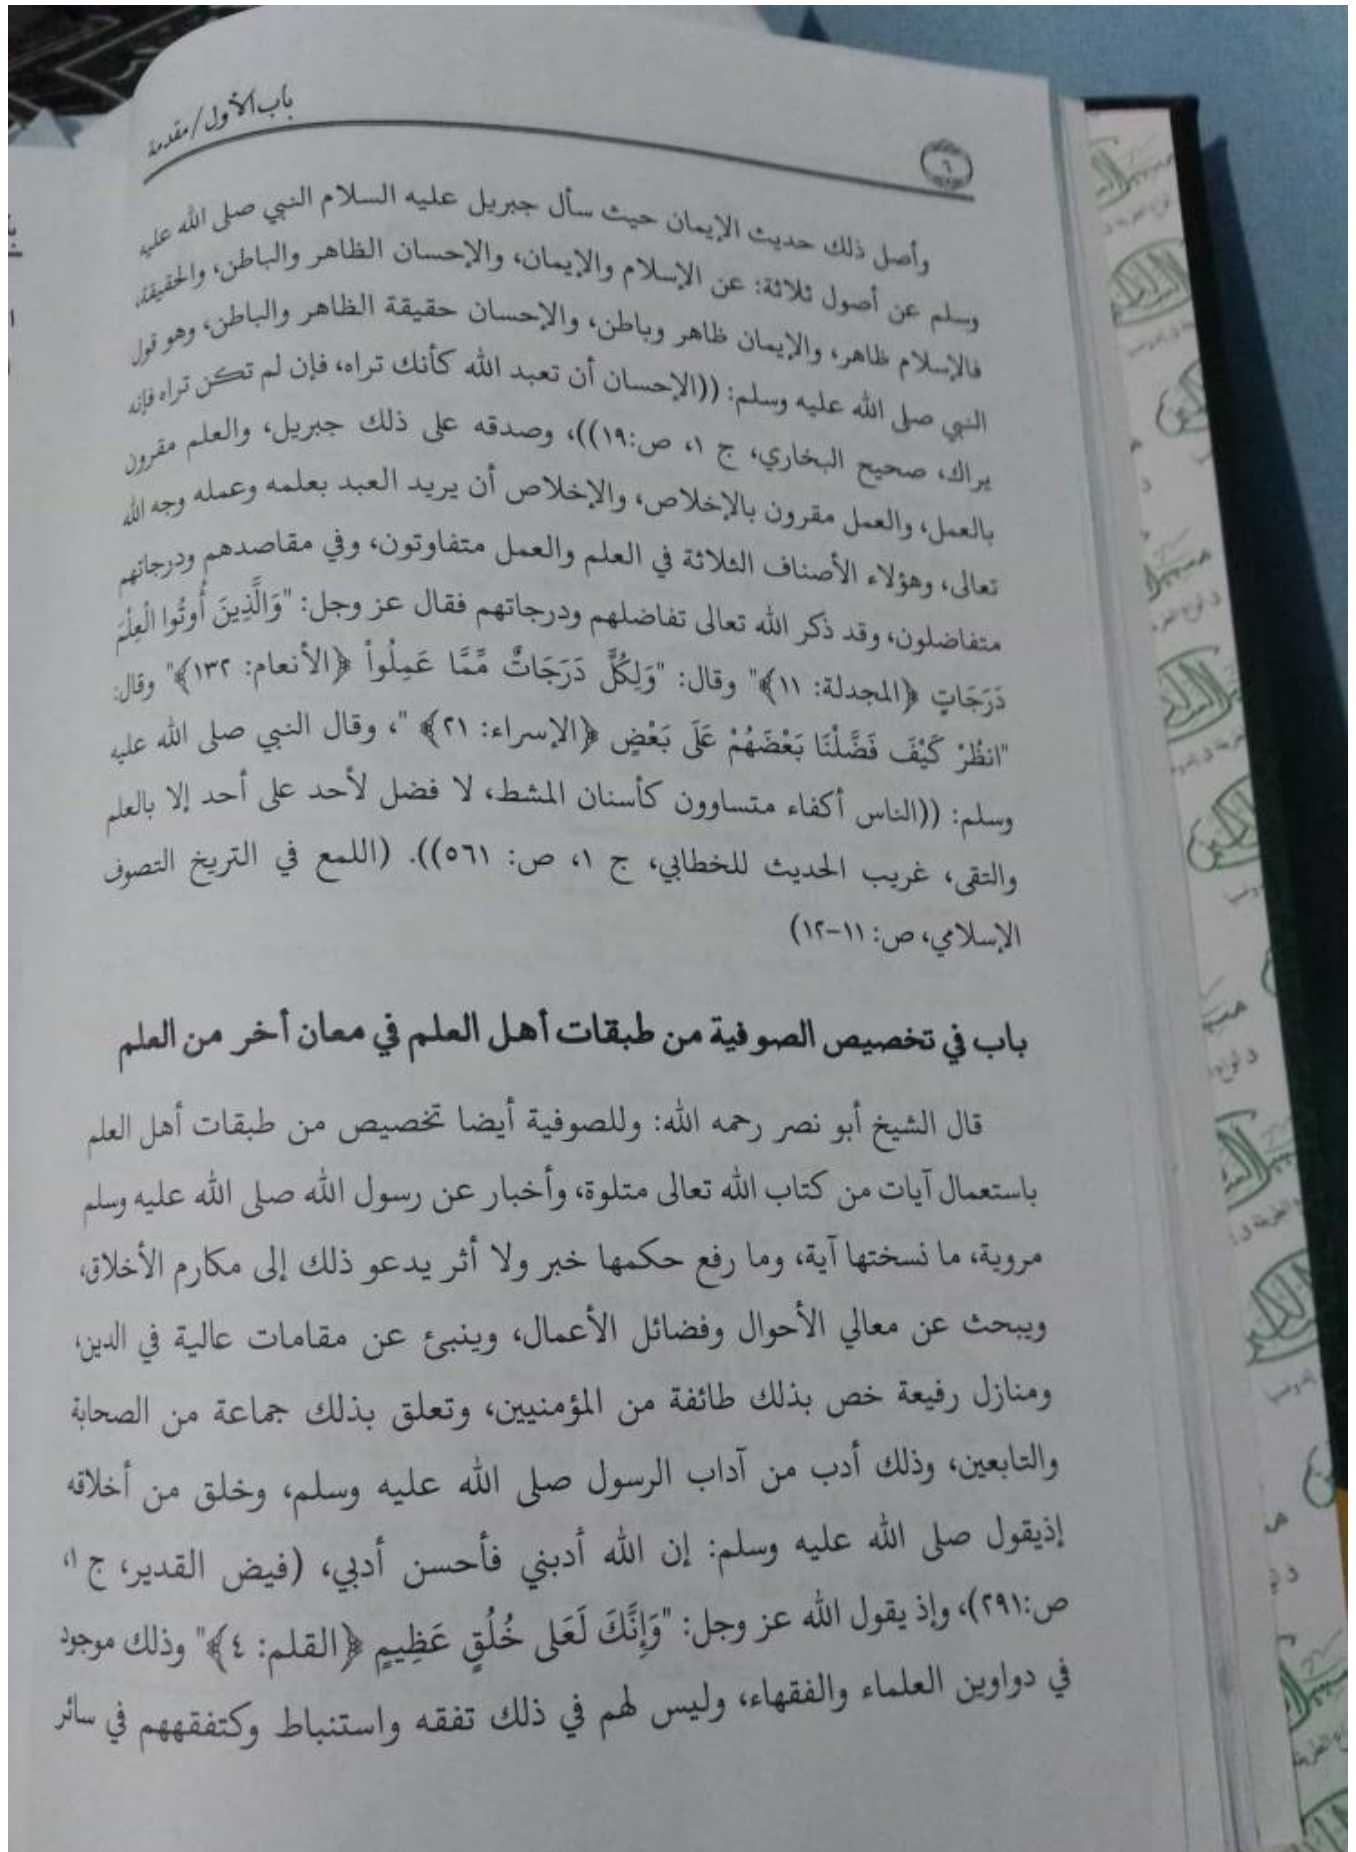 باب الأول/مقدمة
٦
وأصل ذلك حديث الإيمان حيث سأل جبريل عليه السلام النبي صلى الله عليه
وسلم عن أصول ثلاثة: عن الإسلام والإيمان، والإحسان الظاهر والباطن، والحقيقة،
فالإسلام ظاهر، والإيمان ظاهر وباطن، والإحسان حقيقة الظاهر والباطن، وهو قول
النبي صلى الله عليه وسلم: ((الإحسان أن تعبد الله كأنك تراه، فإن لم تكن تراه فإنه
يراك، صحيح البخاري، ج ١، ص:١٩))، وصدقه على ذلك جبريل، والعلم مقرون
بالعمل، والعمل مقرون بالإخلاص، والإخلاص أن يريد العبد بعلمه وعمله وجه الله
تعالى، وهؤلاء الأصناف الثلاثة في العلم والعمل متفاوتون، وفي مقاصدهم ودرجاتهم
متفاضلون، وقد ذكر الله تعالى تفاضلهم ودرجاتهم فقال عز وجل: "وَالَّذِينَ أُوتُوا الْعِلْمَ
دَرَجَاتٍ ﴿المجدلة: ١١﴾" وقال: "وَلِكُلٍّ دَرَجَاتٌ مِّمَّا عَمِلُواْ ﴿الأنعام: ١٣٢﴾" وقال:
"انظُرْ كَيْفَ فَضَّلْنَا بَعْضَهُمْ عَلَى بَعْضٍ ﴿الإسراء: ٢١﴾ "، وقال النبي صلى الله عليه
وسلم: ((الناس أكفاء متساوون كأسنان المشط، لا فضل لأحد على أحد إلا بالعلم
والتقى، غريب الحديث للخطابي، ج ١، ص: ٥٦١)). (اللمع في التريخ التصوف
الإسلامي، ص: ١١-١٢)
باب في تخصيص الصوفية من طبقات أهل العلم في معان أخر من العلم
قال الشيخ أبو نصر رحمه الله: وللصوفية أيضا تخصيص من طبقات أهل العلم
باستعمال آيات من كتاب الله تعالى متلوة، وأخبار عن رسول الله صلى الله عليه وسلم
مروية، ما نسختها آية، وما رفع حكمها خبر ولا أثر يدعو ذلك إلى مكارم الأخلاق،
ويبحث عن معالي الأحوال وفضائل الأعمال، وينبئ عن مقامات عالية في الدين،
ومنازل رفيعة خص بذلك طائفة من المؤمنيين، وتعلق بذلك جماعة من الصحابة
والتابعين، وذلك أدب من آداب الرسول صلى الله عليه وسلم، وخلق من أخلاقه
إذيقول صلى الله عليه وسلم: إن الله أدبني فأحسن أدبي، (فيض القدير، ج ١،
ص:٢٩١)، وإذ يقول الله عز وجل: "وَإِنَّكَ لَعَلى خُلُقٍ عَظِيمٍ ﴿القلم: ٤﴾" وذلك موجود
في دواوين العلماء والفقهاء، وليس لهم في ذلك تفقه واستنباط وكتفقههم في سائر